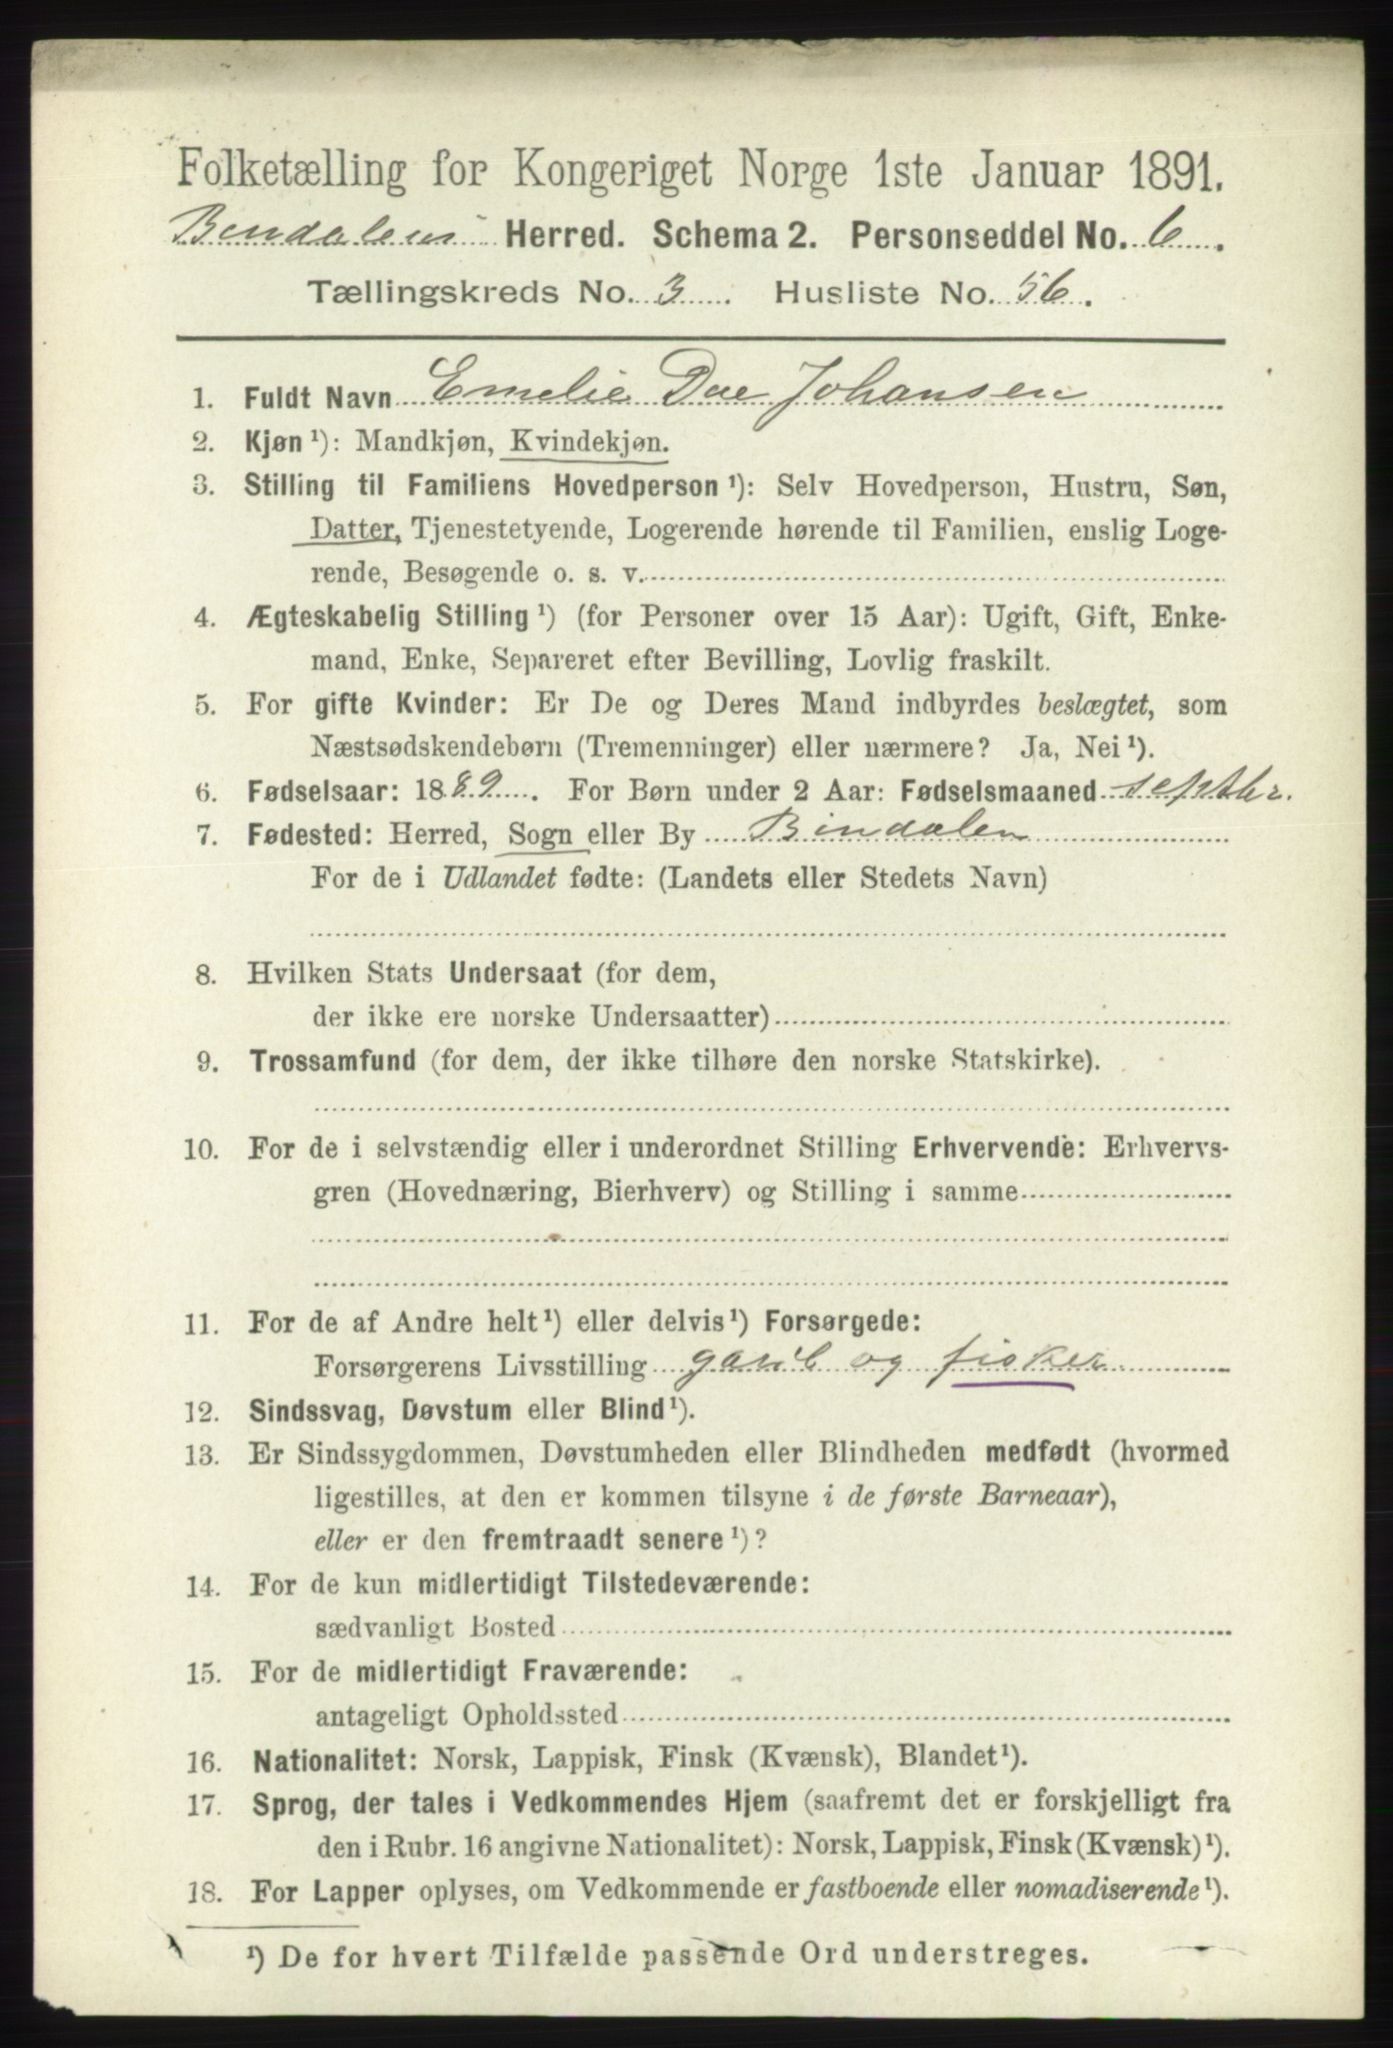 Folketælling for Kongeriget Norge 1ste Januar 1891.
Bindalens Herred. Schema 2. Personseddel No. 6.
Tællingskreds No. 3. Husliste No. 56.
1. Fuldt Navn Emelie Due Johansen
2. Kjøn ¹): Mandkjøn, Kvindekjøn.
3. Stilling til Familiens Hovedperson ¹): Selv Hovedperson, Hustru, Søn,
Datter, Tjenestetyende, Logerende hørende til Familien, enslig Loge-
rende, Besøgende o. s. v.
4. Ægteskabelig Stilling ¹) (for Personer over 15 Aar): Ugift, Gift, Enke-
mand, Enke, Separeret efter Bevilling, Lovlig fraskilt.
5. For gifte Kvinder: Er De og Deres Mand indbyrdes beslægtet, som
Næstsødskendebørn (Tremenninger) eller nærmere? Ja, Nei ¹).
6. Fødselsaar: 1889. For Børn under 2 Aar: Fødselsmaaned septbr.
7. Fødested: Herred, Sogn eller By Bindalen
For de i Udlandet fødte: (Landets eller Stedets Navn)
8. Hvilken Stats Undersaat (for dem,
der ikke ere norske Undersaatter)
9. Trossamfund (for dem, der ikke tilhøre den norske Statskirke).
10. For de i selvstændig eller i underordnet Stilling Erhvervende: Erhvervs-
gren (Hovednæring, Bierhverv) og Stilling i samme
11. For de af Andre helt ¹) eller delvis ¹) Forsørgede:
Forsørgerens Livsstilling garb og fisker
12. Sindssvag, Døvstum eller Blind ¹).
13. Er Sindssygdommen, Døvstumheden eller Blindheden medfødt (hvormed
ligestilles, at den er kommen tilsyne i de første Barneaar),
eller er den fremtraadt senere ¹)?
14. For de kun midlertidigt Tilstedeværende:
sædvanligt Bosted
15. For de midlertidigt Fraværende:
antageligt Opholdssted
16. Nationalitet: Norsk, Lappisk, Finsk (Kvænsk), Blandet ¹).
17. Sprog, der tales i Vedkommendes Hjem (saafremt det er forskjelligt fra
den i Rubr. 16 angivne Nationalitet): Norsk, Lappisk, Finsk (Kvænsk) ¹).
18. For Lapper oplyses, om Vedkommende er fastboende eller nomadiserende ¹).
¹) De for hvert Tilfælde passende Ord understreges.